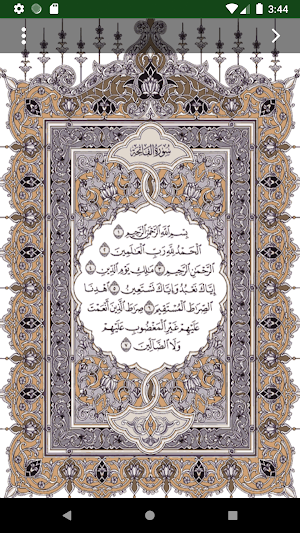 3:44
سُورَةُ الْفَاتِحَةِ
بِسْمِ اللَّهِ الرَّحْمَٰنِ الرَّحِيمِ ١
الْحَمْدُ لِلَّهِ رَبِّ الْعَالَمِينَ ٢
الرَّحْمَٰنِ الرَّحِيمِ ٣ مَالِكِ يَوْمِ الدِّينِ ٤
إِيَّاكَ نَعْبُدُ وَإِيَّاكَ نَسْتَعِينُ ٥ اهْدِنَا
الصِّرَاطَ الْمُسْتَقِيمَ ٦ صِرَاطَ الَّذِينَ أَنْعَمْتَ
عَلَيْهِمْ غَيْرِ الْمَغْضُوبِ عَلَيْهِمْ
وَلَا الضَّالِّينَ ٧